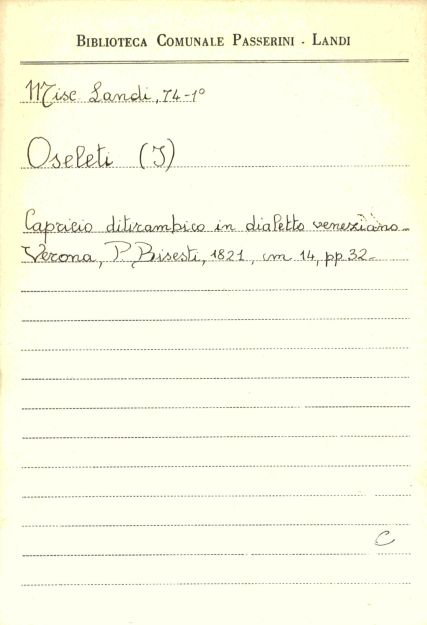 BIBLIOTECA COMUNALE PASSERINI - LANDI
Misc Landi, 74-1°
Oseleti (I)
Capricio ditirambico in dialetto veneziano.
Verona, P. Bisesti, 1821, cm 14, pp 32.
C